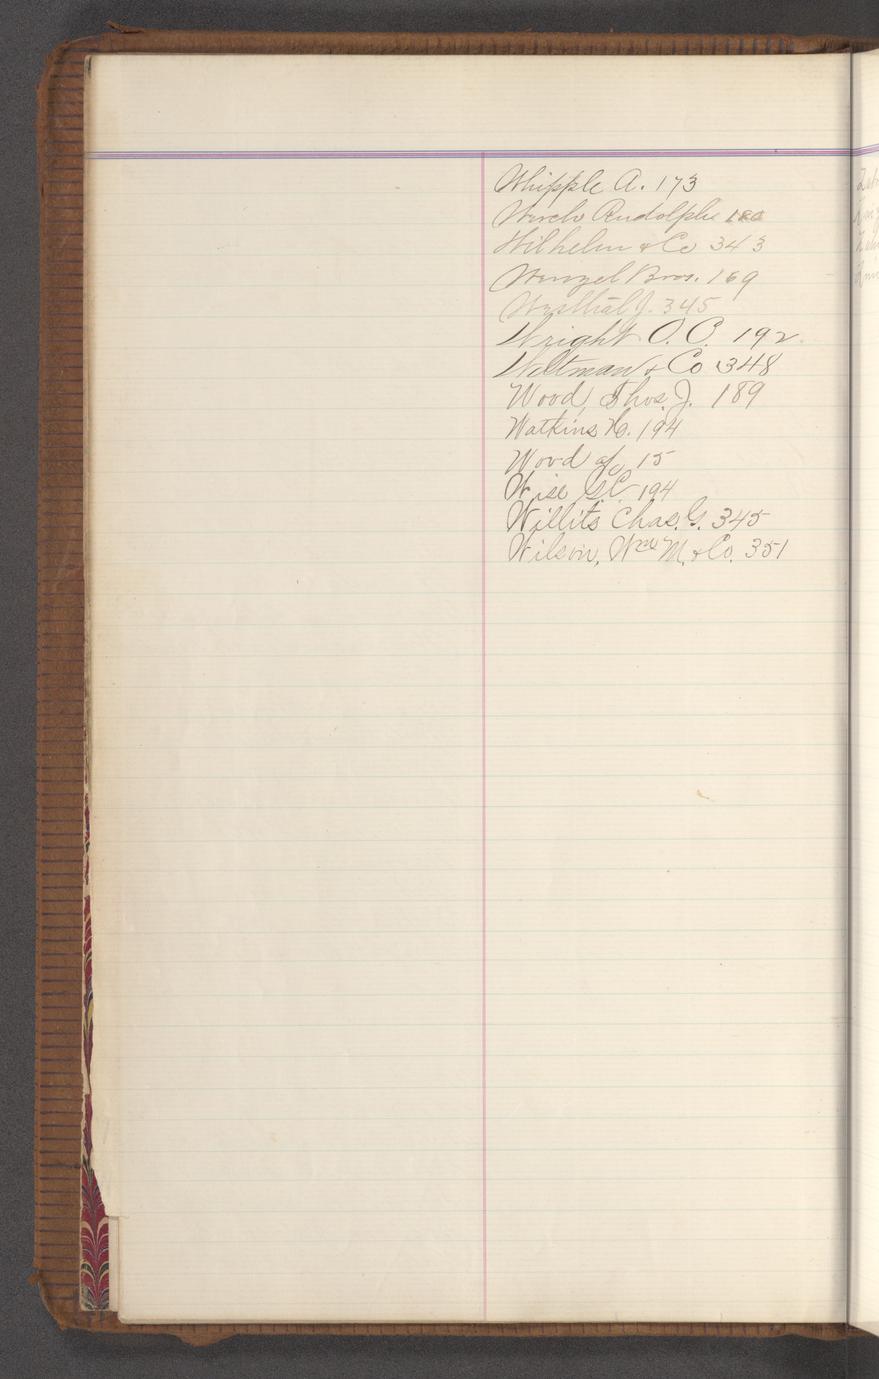 Whipple A. 173
Werch Rudolph 180
Wilhelm & Co 343
Wenzel Bros. 169
Westhal J. 345
Wright O. C. 192
Waltman & Co 348
Wood, Thos. J. 189
Watkins H. 194
Wood 15
Wise, G.C. 194
Willits Chas. G. 345
Wilson, Wm M. & Co. 351